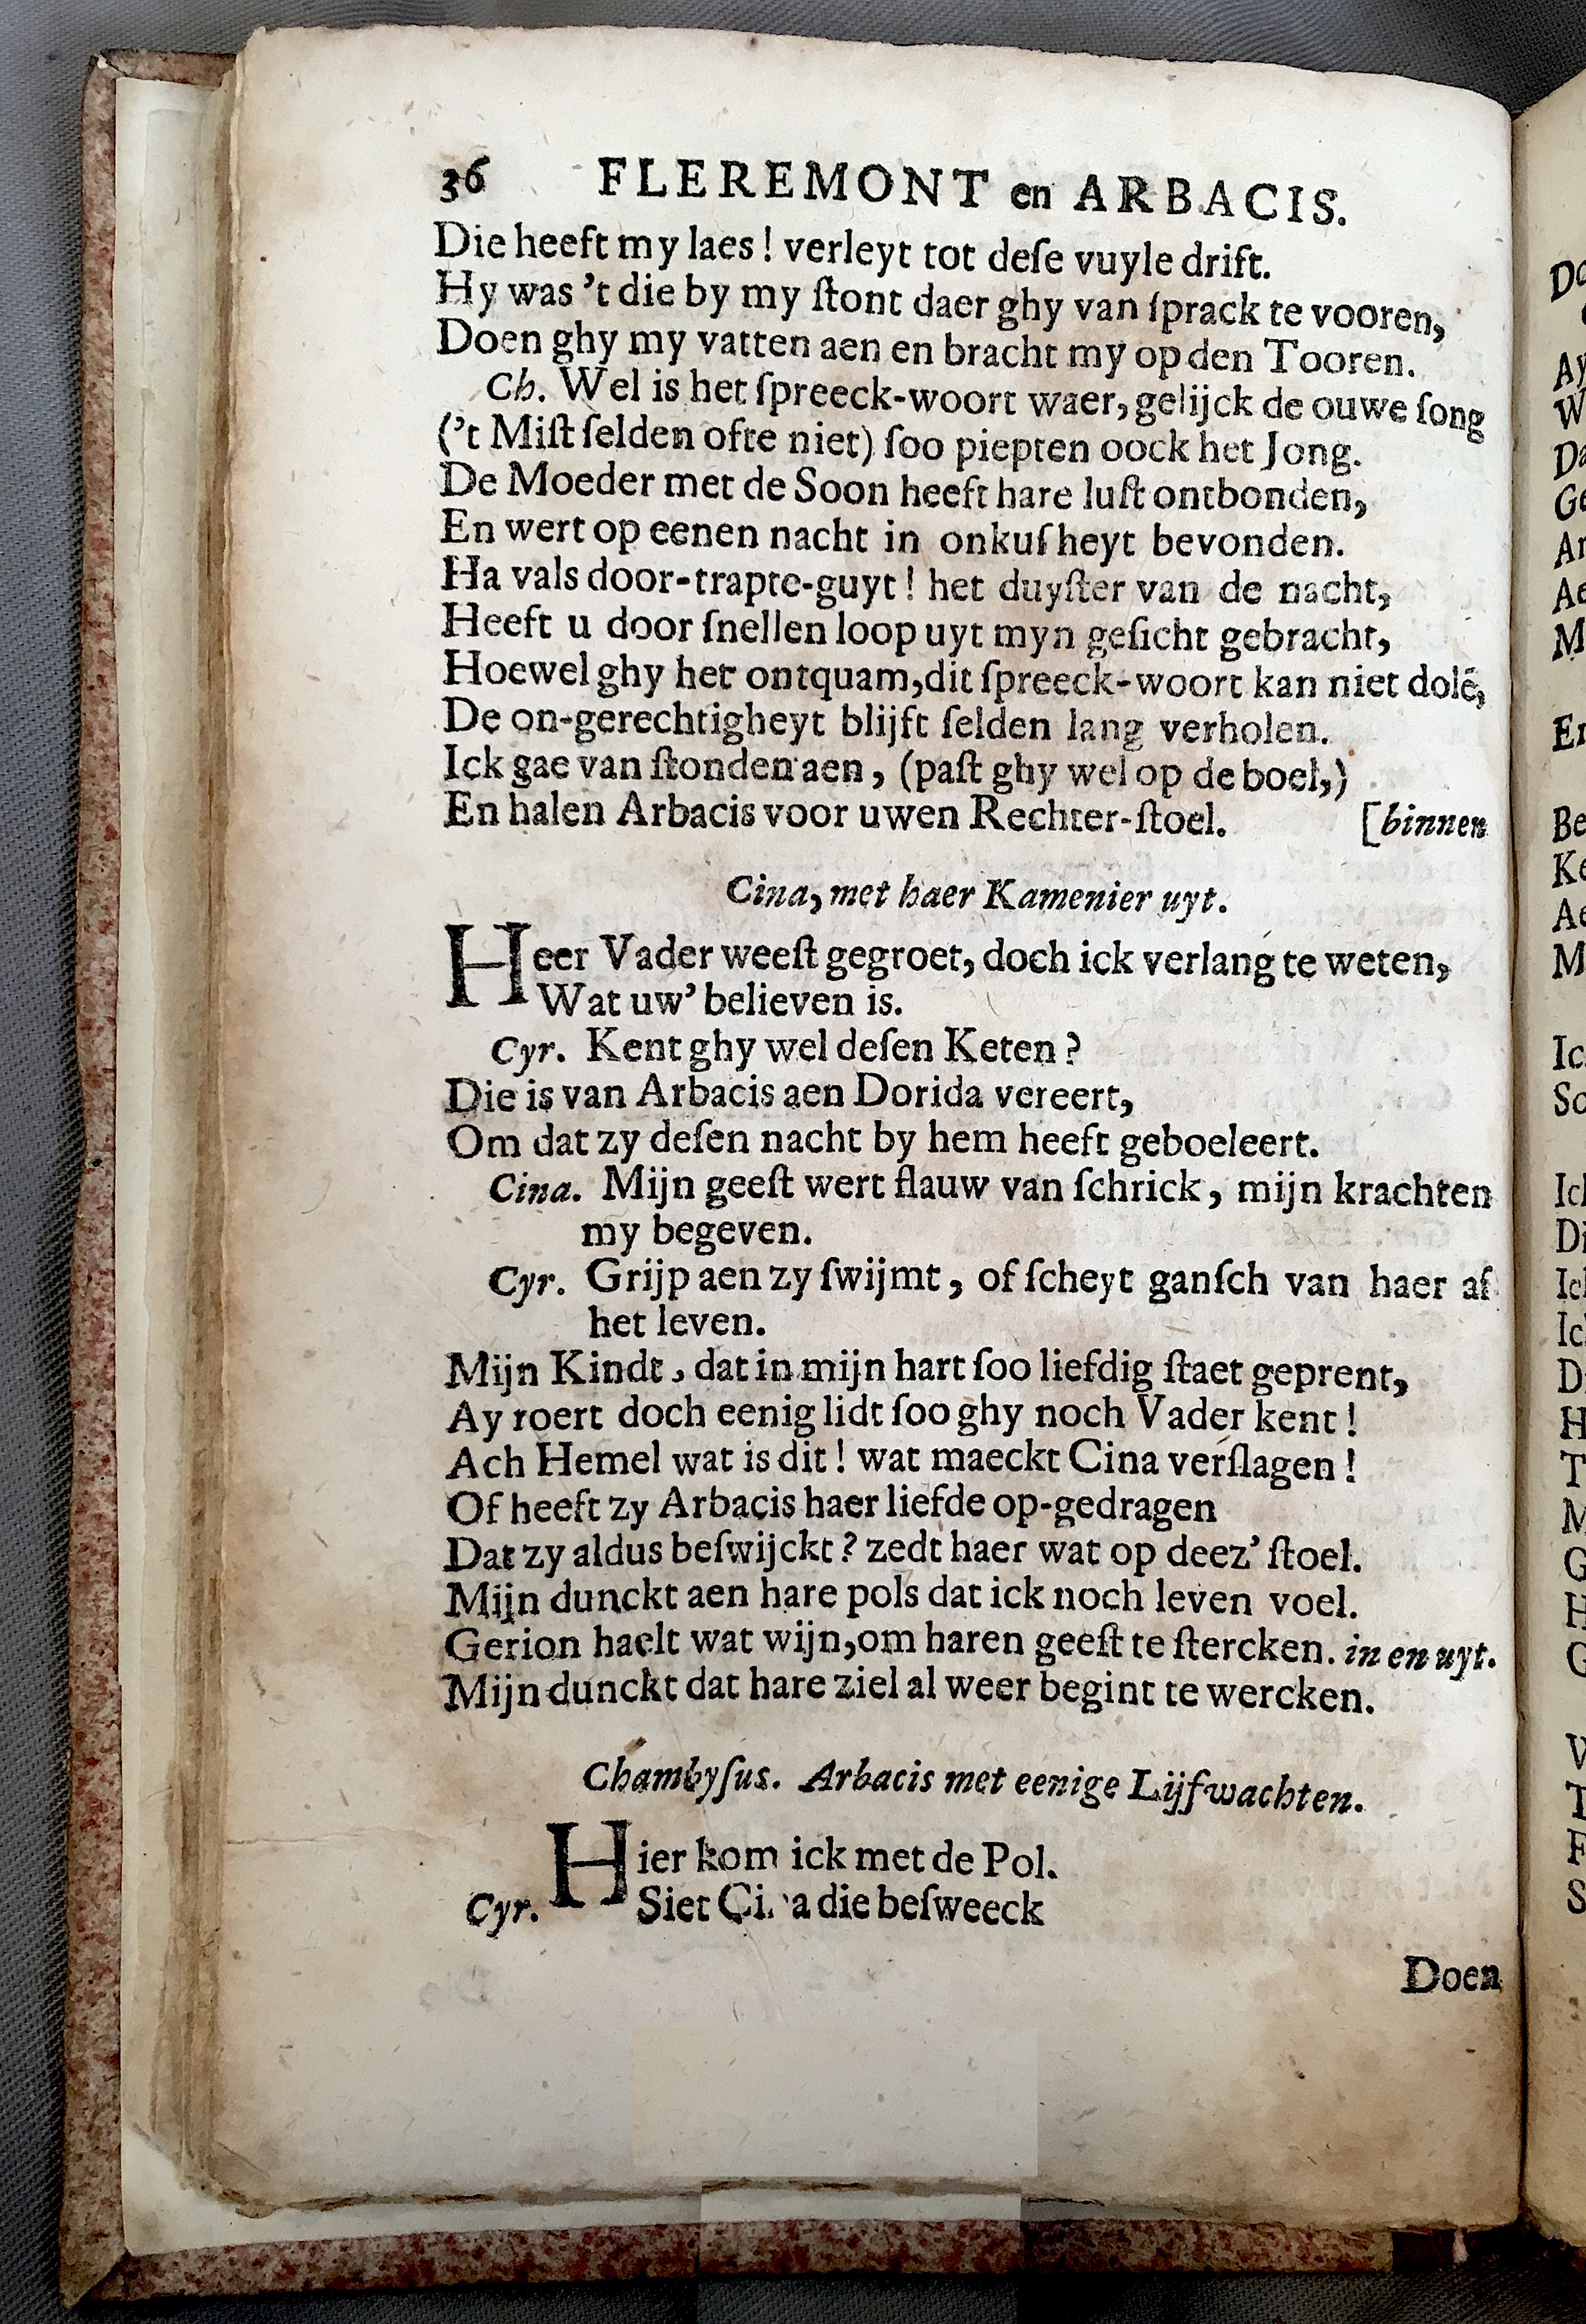 36 FLEREMONT en ARBACIS.
Die heeft my laes! verleyt tot deſe vuyle drift.
Hy was 't die by my ſtont daer ghy van ſprack te vooren,
Doen ghy my vatten aen en bracht my op den Tooren.
Ch. Wel is het ſpreeck-woort waer, gelijck de ouwe ſong
('t Miſt ſelden ofte niet) ſoo piepten oock het Jong.
De Moeder met de Soon heeft hare luſt ontbonden,
En wert op eenen nacht in onkuſheyt bevonden.
Ha vals door-trapte-guyt! het duyſter van de nacht,
Heeft u door ſnellen loop uyt myn geſicht gebracht,
Hoewel ghy het ontquam, dit ſpreeck-woort kan niet dolē,
De on-gerechtigheyt blijft ſelden lang verholen.
Ick gae van ſtonden aen, (paſt ghy wel op de boel,)
En halen Arbacis voor uwen Rechter-ſtoel. [binnen
Cina, met haer Kamenier uyt.
Heer Vader weeſt gegroet, doch ick verlang te weten,
Wat uw' believen is.
Cyr. Kent ghy wel deſen Keten?
Die is van Arbacis aen Dorida vereert,
Om dat zy deſen nacht by hem heeft geboeleert.
Cina. Mijn geeſt wert flauw van ſchrick, mijn krachten
my begeven.
Cyr. Grijp aen zy ſwijmt, of ſcheyt ganſch van haer af
het leven.
Mijn Kindt, dat in mijn hart ſoo liefdig ſtaet geprent,
Ay roert doch eenig lidt ſoo ghy noch Vader kent!
Ach Hemel wat is dit! wat maeckt Cina verſlagen!
Of heeft zy Arbacis haer liefde op-gedragen
Dat zy aldus beſwijckt? zedt haer wat op deez' ſtoel.
Mijn dunckt aen hare pols dat ick noch leven voel.
Gerion haelt wat wijn, om haren geeſt te ſtercken. in en uyt.
Mijn dunckt dat hare ziel al weer begint te wercken.
Chambyſus. Arbacis met eenige Lijfwachten.
Hier kom ick met de Pol.
Cyr. Siet Cina die beſweeck
Doen